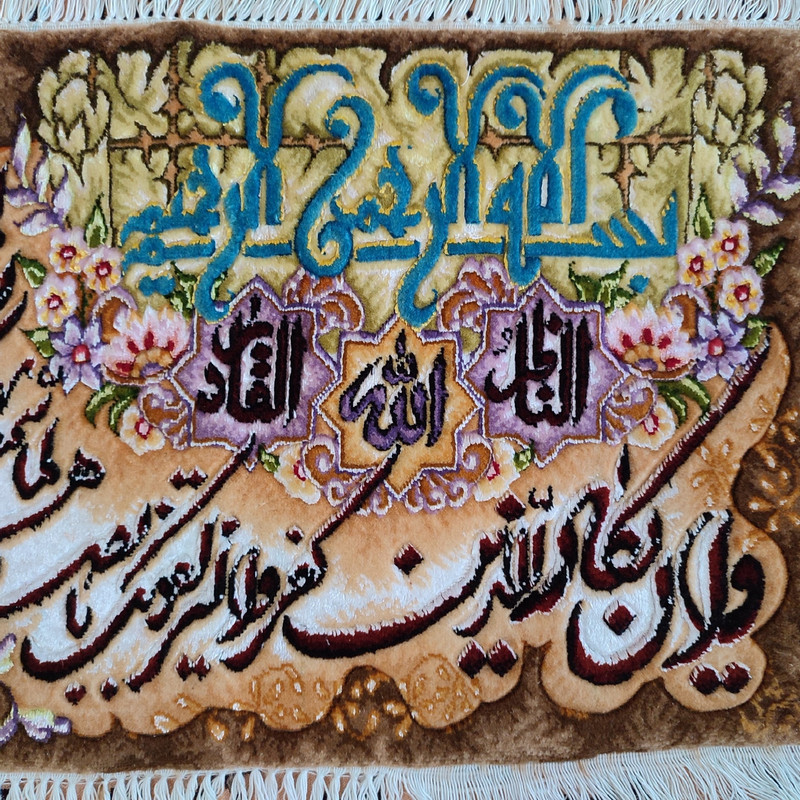 بسم الله الرحمن الرحيم
الناظر الله القادر
وان يكاد الذين كفروا ليزلقونك بابصارهم لما